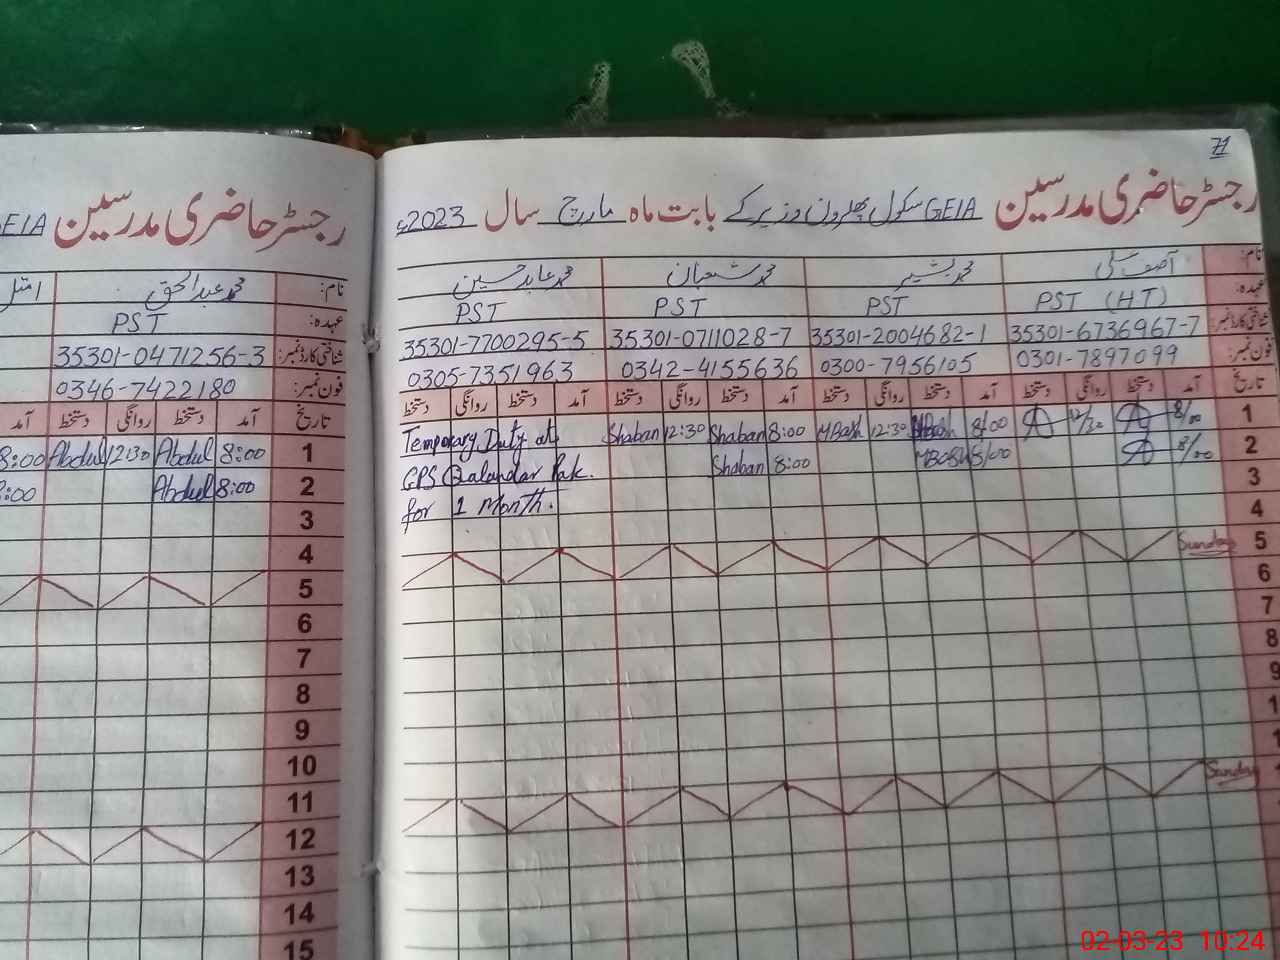 71
رجسٹر حاضری مدرسین GEIA سکول پھلرون وزیرکے بابت ماہ مارچ سال 2023ء
نام: آصف علی محمد بشیر محمد شعبان محمد عابد حسین
عہدہ: PST (HT) PST PST PST
شناختی کارڈ نمبر: 35301-6736967-7 35301-2004682-1 35301-0711028-7 35301-7700295-5
فون نمبر: 0301-7897099 0300-7956105 0342-4155636 0305-7351963
تاریخ آمد دستخط روانگی دستخط آمد دستخط روانگی دستخط آمد دستخط روانگی دستخط آمد دستخط روانگی دستخط
1 8/00 12/30 8/00 12:30 MBash 8:00 Shaban 12:30 Shaban Temporary Duty at
2 8/00 8/00 8:00 Shaban GPS Qalandar Pak.
3 for 1 Month.
4
5 Sunday
6
7
8
9
1
1
Sunday
GEIA رجسٹر حاضری مدرسین
نام: محمد عبدالحق
عہدہ: PST
شناختی کارڈ نمبر: 35301-0471256-3
فون نمبر: 0346-7422180
تاریخ آمد دستخط روانگی دستخط آمد
1 8:00 Abdul 12:30 Abdul 8:00
2 8:00 Abdul 8:00
3
4
5
6
7
8
9
10
11
12
13
14
15
02-03-23 10:24